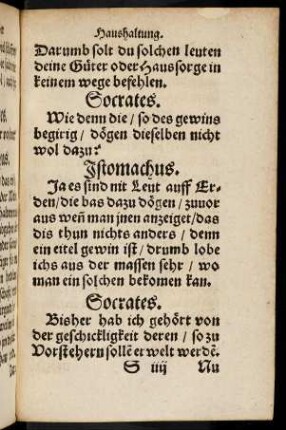 Haushaltung.
Darumb solt du solchen leuten
deine Güter oder Haussorge in
keinem wege befehlen.
Socrates.
Wie denn die / so des gewins
begirig / dögen dieselben nicht
wol dazu?
Jstomachus.
Ja es sind nit Leut auff Er-
den / die bas dazu dögen / zuuor
aus weñ man jnen anzeiget / das
dis thun nichts anders / denn
ein eitel gewin ist / drumb lobe
ichs aus der massen sehr / wo
man ein solchen bekomen kan.
Socrates.
Bisher hab ich gehört von
der geschickligkeit deren / so zu
Vorstehern sollē erwelt werdē.
S iiij Nu